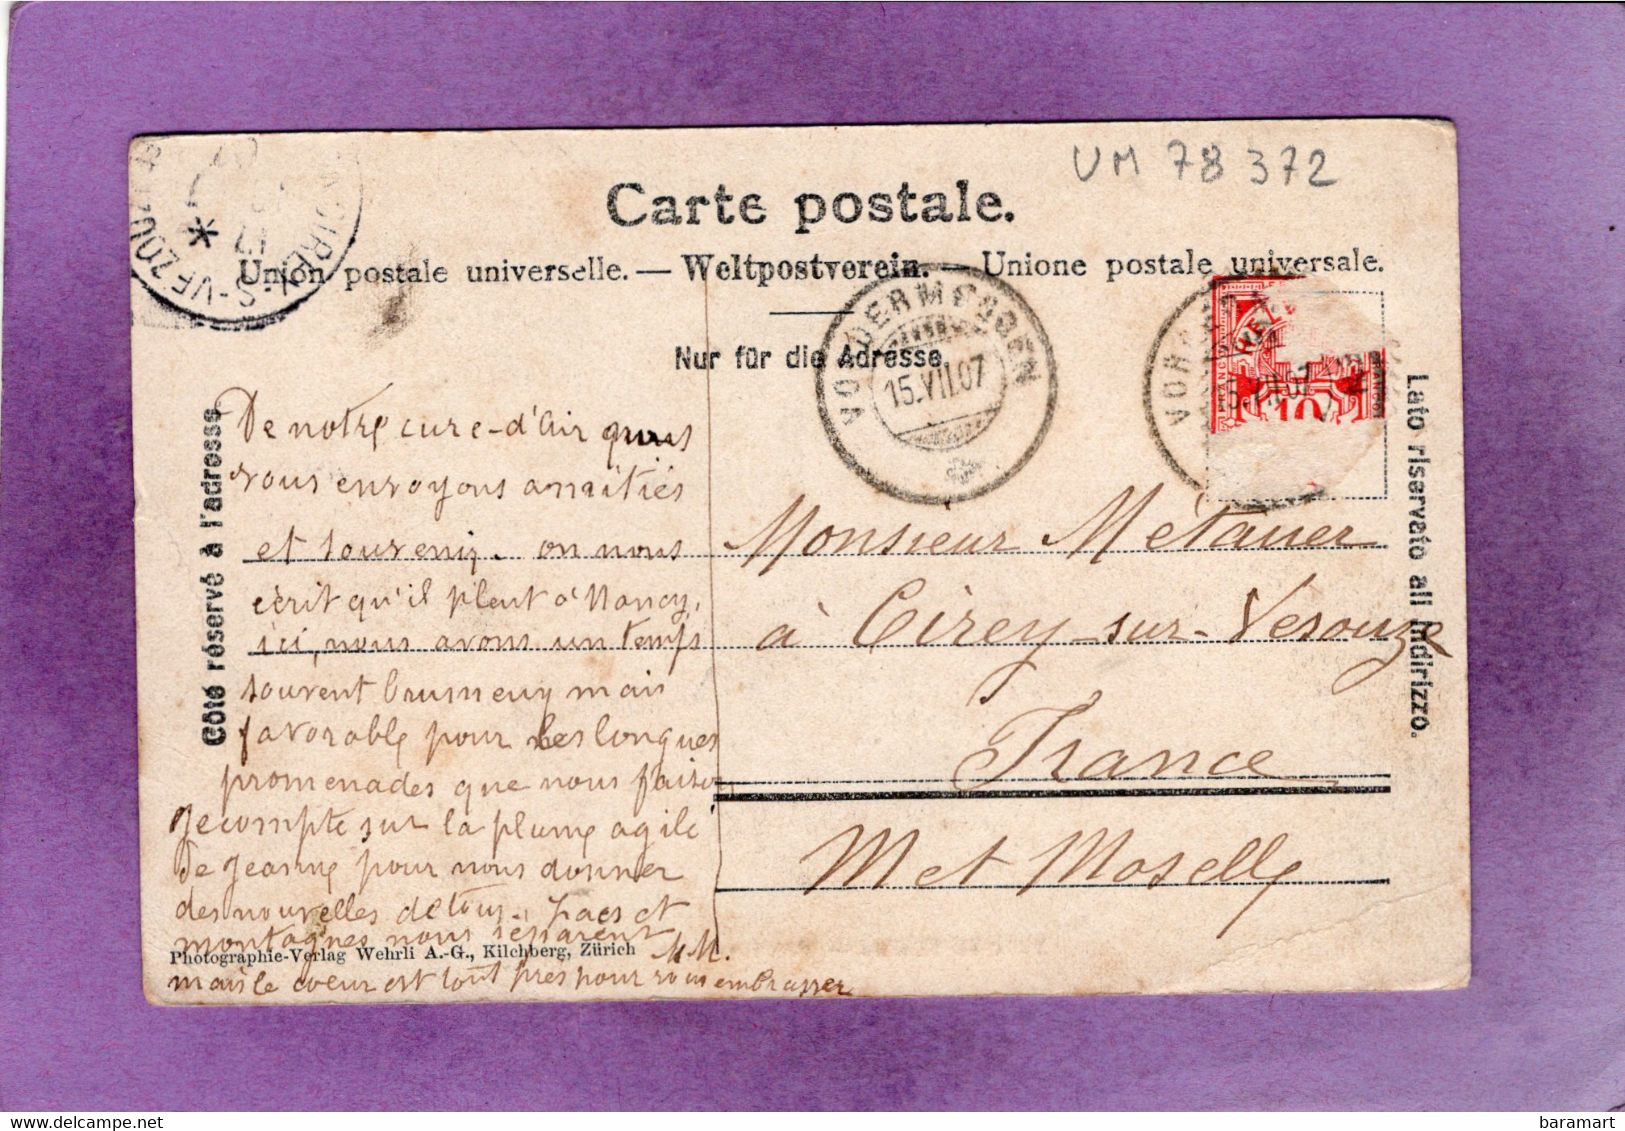 UM 78 372
Carte postale.
Union postale universelle. — Weltpostverein. — Unione postale universale.
Nur für die Adresse.
VORDERMEGGEN
15.VII.07
VOR
VII.07
FRANCO
10
CIREY-S-VEZOUZE
17
Côté réservé à l'adresse
Lato riservato all indirizzo.
De notre cure-d'air nous
vous envoyons amitiés
et souvenir. on nous
écrit qu'il pleut à Nancy,
ici, nous avons un temps
souvent brumeux mais
favorable pour les longues
promenades que nous faisons
Je compte sur la plume agile
de Jeanne pour nous donner
des nouvelles de tous. Lacs et
montagnes nous séparent
mais le coeur est tout près pour vous embrasser
M M.
Photographie-Verlag Wehrli A.-G., Kilchberg, Zürich
Monsieur Métauer
à Cirey-sur-Vesouze
France
M et Moselle
baramart